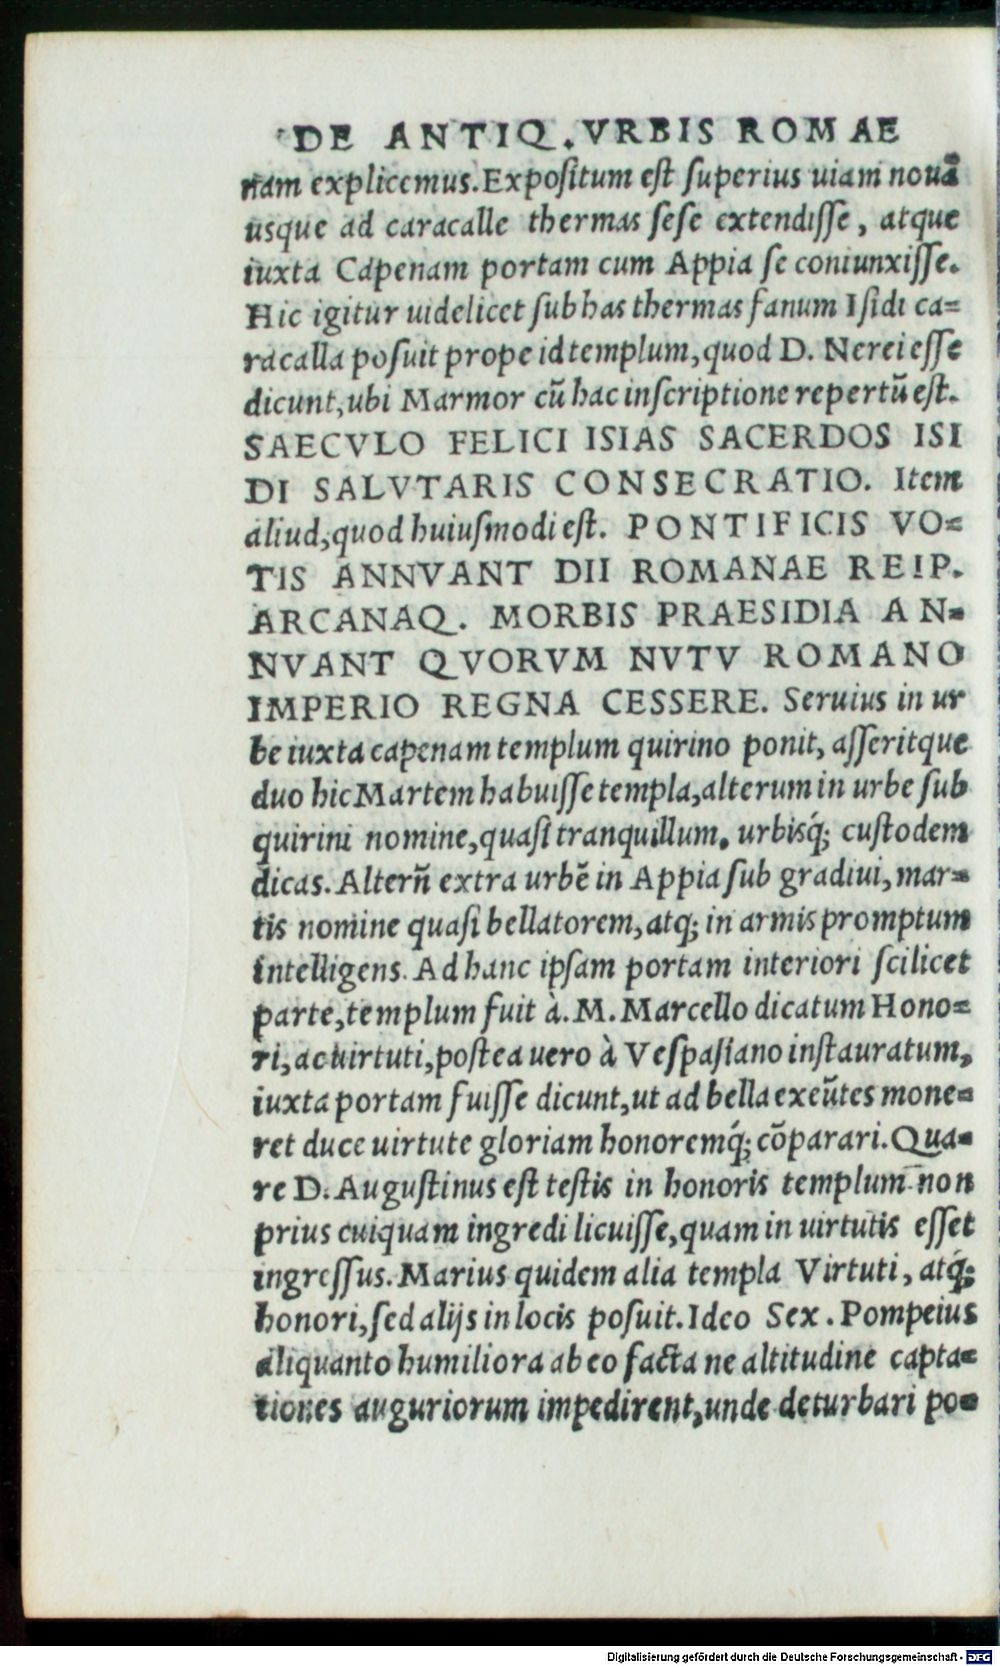 DE ANTIQ. VRBIS ROMAE
nam explicemus. Expositum est superius uiam nouã
usque ad caracalle thermas sese extendisse, atque
iuxta Capenam portam cum Appia se coniunxisse.
Hic igitur uidelicet sub has thermas fanum Isidi ca=
racalla posuit prope id templum, quod D. Nerei esse
dicunt, ubi Marmor cũ hac inscriptione repertũ est.
SAECVLO FELICI ISIAS SACERDOS ISI
DI SALVTARIS CONSECRATIO. Item
aliud, quod huiusmodi est. PONTIFICIS VO=
TIS ANNVANT DII ROMANAE REIP.
ARCANAQ. MORBIS PRAESIDIA AN=
NVANT QVORVM NVTV ROMANO
IMPERIO REGNA CESSERE. Seruius in ur
be iuxta capenam templum quirino ponit, asseritque
duo hic Martem habuisse templa, alterum in urbe sub
quirini nomine, quasi tranquillum, urbisq́; custodem
dicas. Alterũ extra urbẽ in Appia sub gradiui, mar=
tis nomine quasi bellatorem, atq; in armis promptum
intelligens. Ad hanc ipsam portam interiori scilicet
parte, templum fuit à. M. Marcello dicatum Hono=
ri, ac uirtuti, postea uero à Vespasiano instauratum,
iuxta portam fuisse dicunt, ut ad bella exeũtes mone=
ret duce uirtute gloriam honoremq́; cõparari. Qua=
re D. Augustinus est testis in honoris templum non
prius cuiquam ingredi licuisse, quam in uirtutis esset
ingressus. Marius quidem alia templa Virtuti, atq́;
honori, sed alijs in locis posuit. Ideo Sex. Pompeius
aliquanto humiliora ab eo facta ne altitudine capta=
tiones auguriorum impedirent, unde deturbari po=
Digitalisierung gefördert durch die Deutsche Forschungsgemeinschaft - DFG